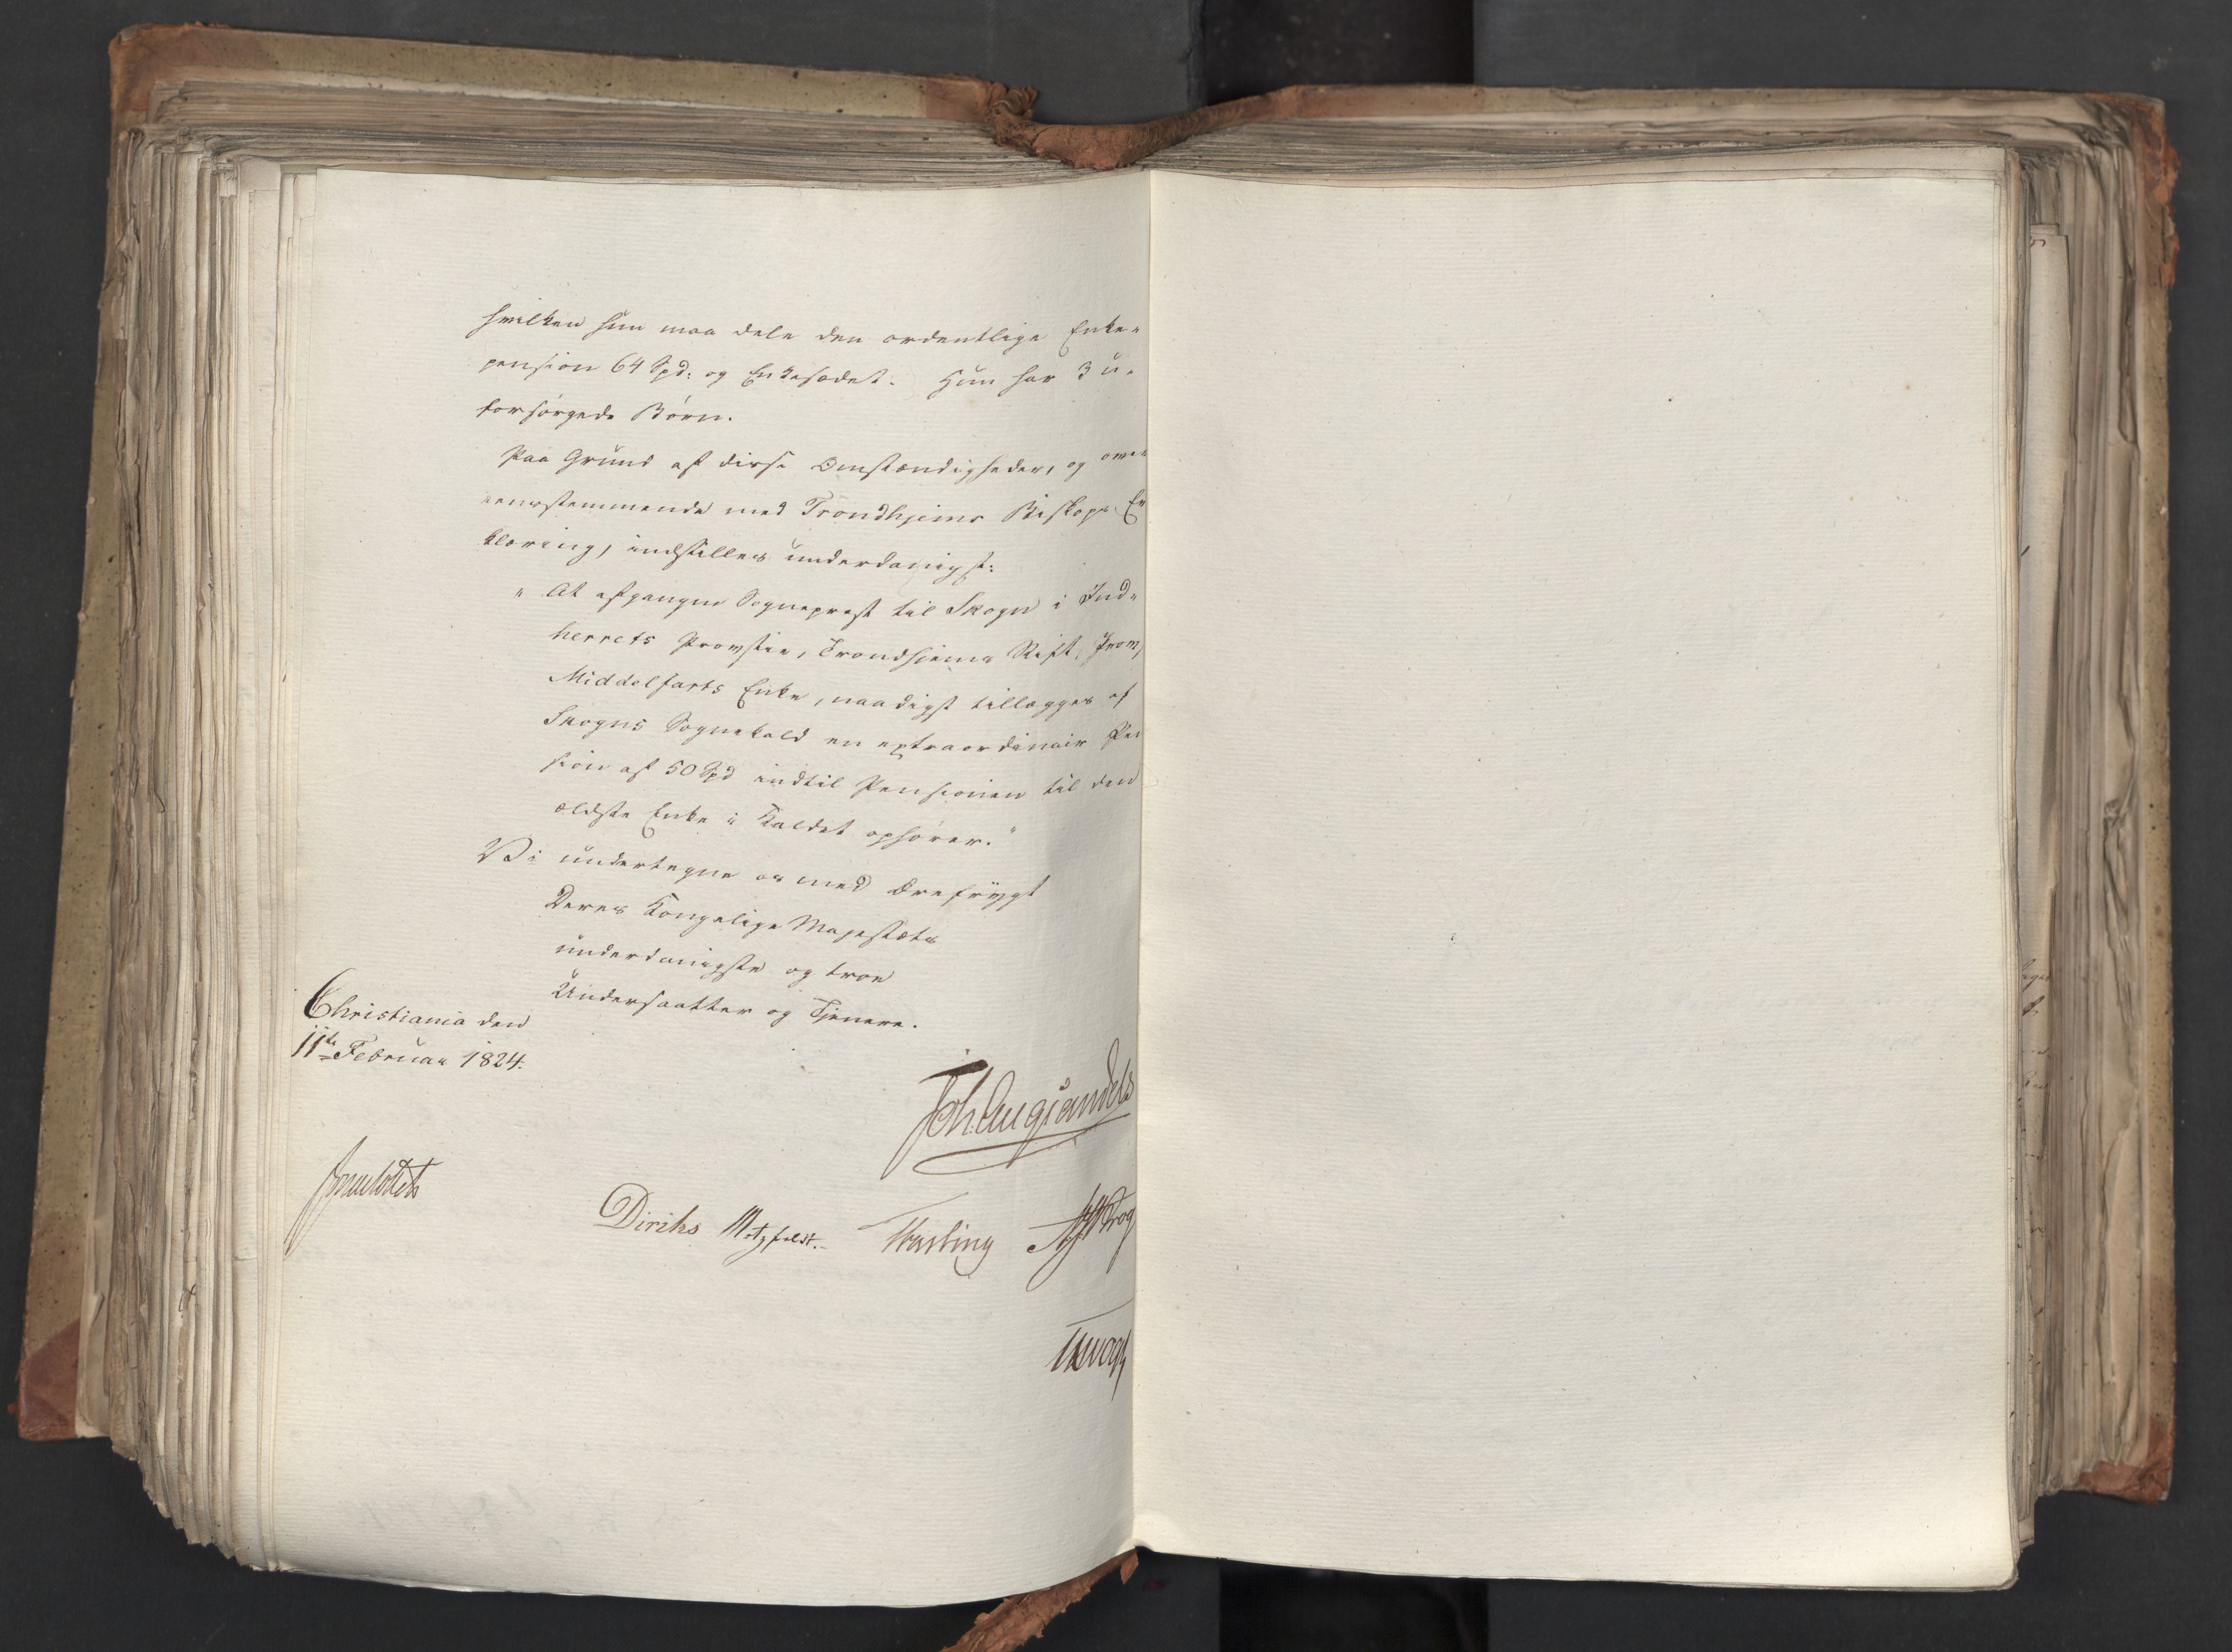 hvilken hun maa dele den ordentlige Enke-
pension 64 Spd: og Enkesædet. Hun har 3 u-
forsørgede Børn.
Paa Grund af disse Omstændigheder, og over-
eensstemmende med Trondhjems Biskops Er
klæring, indstilles underdanigst:
" At afgangne Sognepræst til Skogn i Ind-
herrets Provstie, Trondhjems Stift,
Middelfarts Enke, naadigst tillægges af
Skogns Sognekald en extraordinair Pen
sion af 50 Spd indtil Pensionen til den
ældste Enke i Kaldet ophører."
Vi undertegne os med Ærefrygt
Deres Kongelige Majestæts
underdanigste og troe
Undersaatter og Tjenere.
Christiania den
11te Februar 1824.
Joh. Aug Sandels
Diriks Motzfeldt. Krog